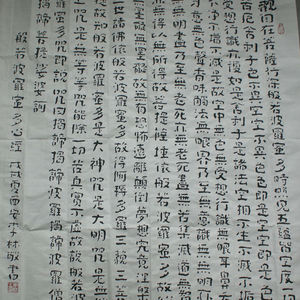 觀自在菩薩行深般若波羅蜜多時照見五蘊皆空度一
切苦厄舍利子色不異空空不異色色即是空空即是色
受想行識亦復如是舍利子是諸法空相不生不滅不垢
不淨不增不減是故空中無色無受想行識無眼耳鼻舌
身意無色聲香味觸法無眼界乃至無意識界無無明亦
無無明盡乃至無老死亦無老死盡無苦集滅道無智亦
無得以無所得故菩提薩埵依般若波羅蜜多故心無罣
礙無罣礙故無有恐怖遠離顛倒夢想究竟涅槃三
世諸佛依般若波羅蜜多故得阿耨多羅三藐三菩
提故知般若波羅蜜多是大神咒是大明咒是無上咒是
無等等咒能除一切苦真實不虛故說般若波
羅蜜多咒即說咒曰揭諦揭諦波羅揭諦波羅僧
揭諦菩提薩婆訶
般若波羅蜜多心經 戊戌夏西安李林敬書